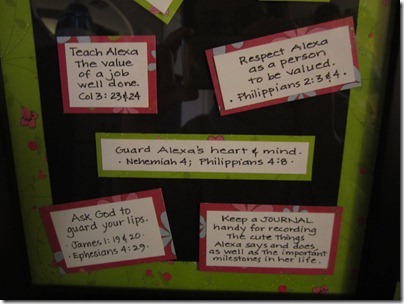 Teach Alexa
The value
of a job
well done.
Col 3: 23 & 24
Respect Alexa
as a person
to be valued.
· Philippians 2: 3 & 4 ·
Guard Alexa's heart & mind.
· Nehemiah 4; Philippians 4:8 ·
Ask God to
guard your lips.
· James 1: 19 & 20 ·
· Ephesians 4: 29 ·
Keep a JOURNAL
handy for recording
The cute Things
Alexa says and does,
as well as the important
milestones in her life.